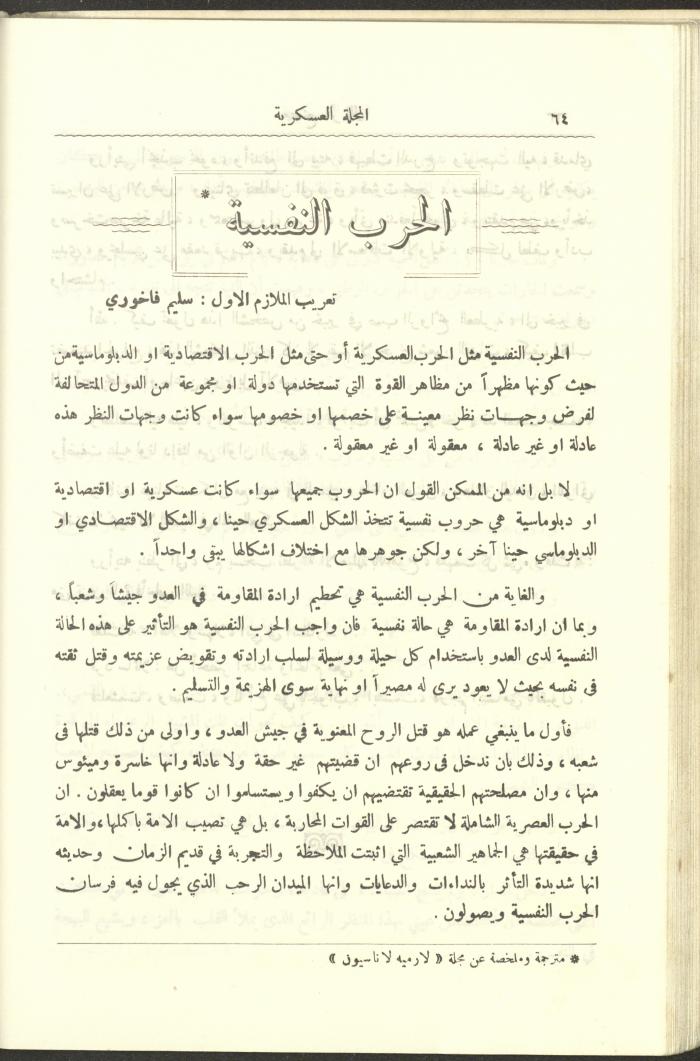 ٦٤
المجلة العسكرية
الحرب النفسية *
تعريب الملازم الاول : سليم فاخوري
الحرب النفسية مثل الحرب العسكرية أو حتى مثل الحرب الاقتصادية او الدبلوماسية من
حيث كونها مظهراً من مظاهر القوة التي تستخدمها دولة او مجموعة من الدول المتحالفة
لفرض وجهات نظر معينة على خصمها او خصومها سواء كانت وجهات النظر هذه
عادلة او غير عادلة ، معقولة او غير معقولة .
لا بل انه من الممكن القول ان الحروب جميعها سواء كانت عسكرية او اقتصادية
او دبلوماسية هي حروب نفسية تتخذ الشكل العسكري حينا ، والشكل الاقتصادي او
الدبلوماسي حينا آخر ، ولكن جوهرها مع اختلاف اشكالها يبقى واحداً .
والغاية من الحرب النفسية هي تحطيم ارادة المقاومة في العدو جيشاً وشعباً ،
وبما ان ارادة المقاومة هي حالة نفسية فان واجب الحرب النفسية هو التأثير على هذه الحالة
النفسية لدى العدو باستخدام كل حيلة ووسيلة لسلب ارادته وتقويض عزيمته وقتل ثقته
فى نفسه بحيث لا يعود يرى له مصيراً او نهاية سوى الهزيمة والتسليم .
فأول ما ينبغي عمله هو قتل الروح المعنوية في جيش العدو ، واولى من ذلك قتلها فى
شعبه ، وذلك بان ندخل فى روعهم ان قضيتهم غير حقة ولا عادلة وانها خاسرة وميئوس
منها ، وان مصلحتهم الحقيقية تقتضيهم ان يكفوا ويستسلموا ان كانوا قوما يعقلون . ان
الحرب العصرية الشاملة لا تقتصر على القوات المحاربة ، بل هي تصيب الامة باكملها ، والامة
في حقيقتها هي الجماهير الشعبية التي اثبتت الملاحظة والتجربة في قديم الزمان وحديثه
انها شديدة التأثر بالنداءات والدعايات وانها الميدان الرحب الذي يجول فيه فرسان
الحرب النفسية ويصولون .
* مترجمة وملخصة عن مجلة « لارميه لاناسيون »